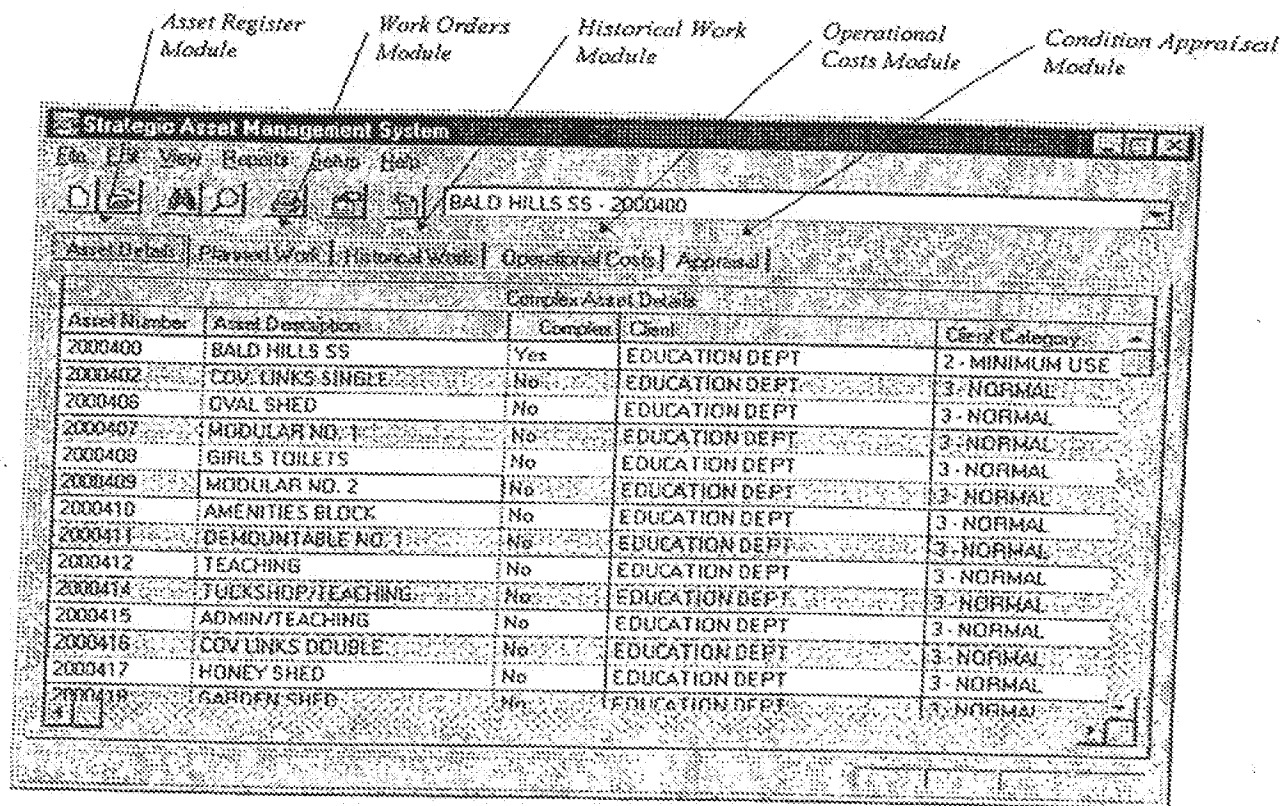 Asset Register
Module
Work Orders
Module
Historical Work
Module
Operational
Costs Module
Condition Appraisal
Module
Strategic Asset Management System
File Edit View Reports Setup Help
BALD HILLS SS - 2000400
Asset Details Planned Work Historical Work Operational Costs Appraisal
Complex Asset Details
Asset Number Asset Description Complex Client Client Category
2000400 BALD HILLS SS Yes EDUCATION DEPT 2 - MINIMUM USE
2000402 COV. LINKS SINGLE No EDUCATION DEPT 3 - NORMAL
2000406 OVAL SHED No EDUCATION DEPT 3 - NORMAL
2000407 MODULAR NO. 1 No EDUCATION DEPT 3 - NORMAL
2000408 GIRLS TOILETS No EDUCATION DEPT 3 - NORMAL
2000409 MODULAR NO. 2 No EDUCATION DEPT 3 - NORMAL
2000410 AMENITIES BLOCK No EDUCATION DEPT 3 - NORMAL
2000411 DEMOUNTABLE NO. 1 No EDUCATION DEPT 3 - NORMAL
2000412 TEACHING No EDUCATION DEPT 3 - NORMAL
2000414 TUCKSHOP/TEACHING No EDUCATION DEPT 3 - NORMAL
2000415 ADMIN/TEACHING No EDUCATION DEPT 3 - NORMAL
2000416 COV LINKS DOUBLE No EDUCATION DEPT 3 - NORMAL
2000417 HONEY SHED No EDUCATION DEPT 3 - NORMAL
2000418 GARDEN SHED No EDUCATION DEPT 3 - NORMAL